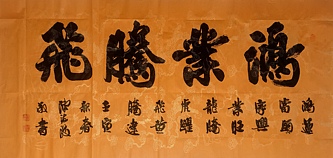 鴻業騰飛
鴻運
當頭
興
業旺
龍騰
虎躍
飛黃
騰達
壬寅
新春
敬書